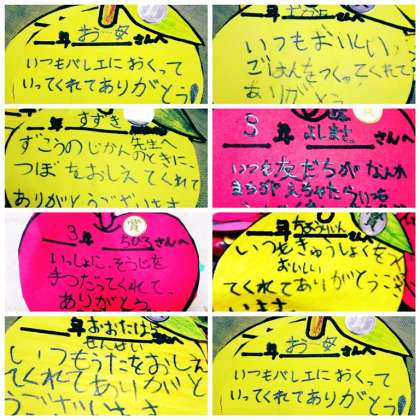 年 お母さんへ
いつもバレエにおくって
いってくれてありがとう
さんへ
いつもおいしい
ごはんをつくってくれて
ありがとう
年 すずき先生へ
ずこうのじかんのときに、
つぼをおしえてくれて
ありがとうございます
3年 よしまささんへ
いつも友だちが
3年 ちひろさんへ
いっしょに、そうじを
手つだってくれて、
ありがとう。
賞
いつもきゅうしょくをつ
おいしい
くれてありがとうござ
います。
賞
年
せんぱい
いつもうたをおしえ
てくれてありがと
うございます
年 お母さんへ
いつもバレエにおくって
いってくれてありがとう